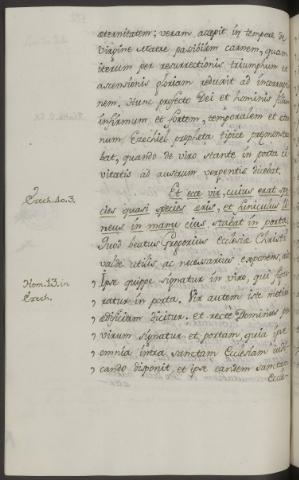 æternitatem; veram accepit in tempore de
Virgine Matre passibilem carnem, quam
iterum per resurrectionis triumphum et
ascensionis gloriam reduxit ad incorrup
nem. Hunc profecto Dei et hominis filium
infirmum et fortem, temporalem et æter
num Ezechiel propheta typice præmonstra
bat, quando de viro stante in porta ci
vitatis ad austrum vergentis dicebat.
Ezech. 40. 3.
Et ecce vir, cuius erat spe
cies quasi species æris, et funiculus li
neus in manu eius, stabat in porta.
Quod beatus Gregorius Ecclesiæ Christi
valde utilis, ac necessarius exponens, ait
Hom. 13. in
Ezech.
Ipse quippe signatur in viro, qui figu
ratur in porta. Vir autem iste metiri
ædificium dicitur. et recte Dominus per
virum signatur et portam, quia ipse
omnia intra sanctam Ecclesiam iudi
cando disponit, et ipse eandem sanctam
Eccle-